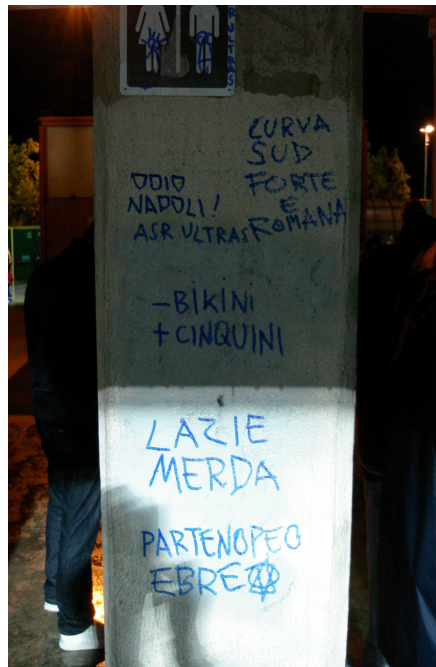 ULTRAS
CURVA
SUD
FORTE
E
ROMANA
ODIO
NAPOLI!
ASR ULTRAS
-BIKINI
+CINQUINI
LAZIE
MERDA
PARTENOPEO
EBREO